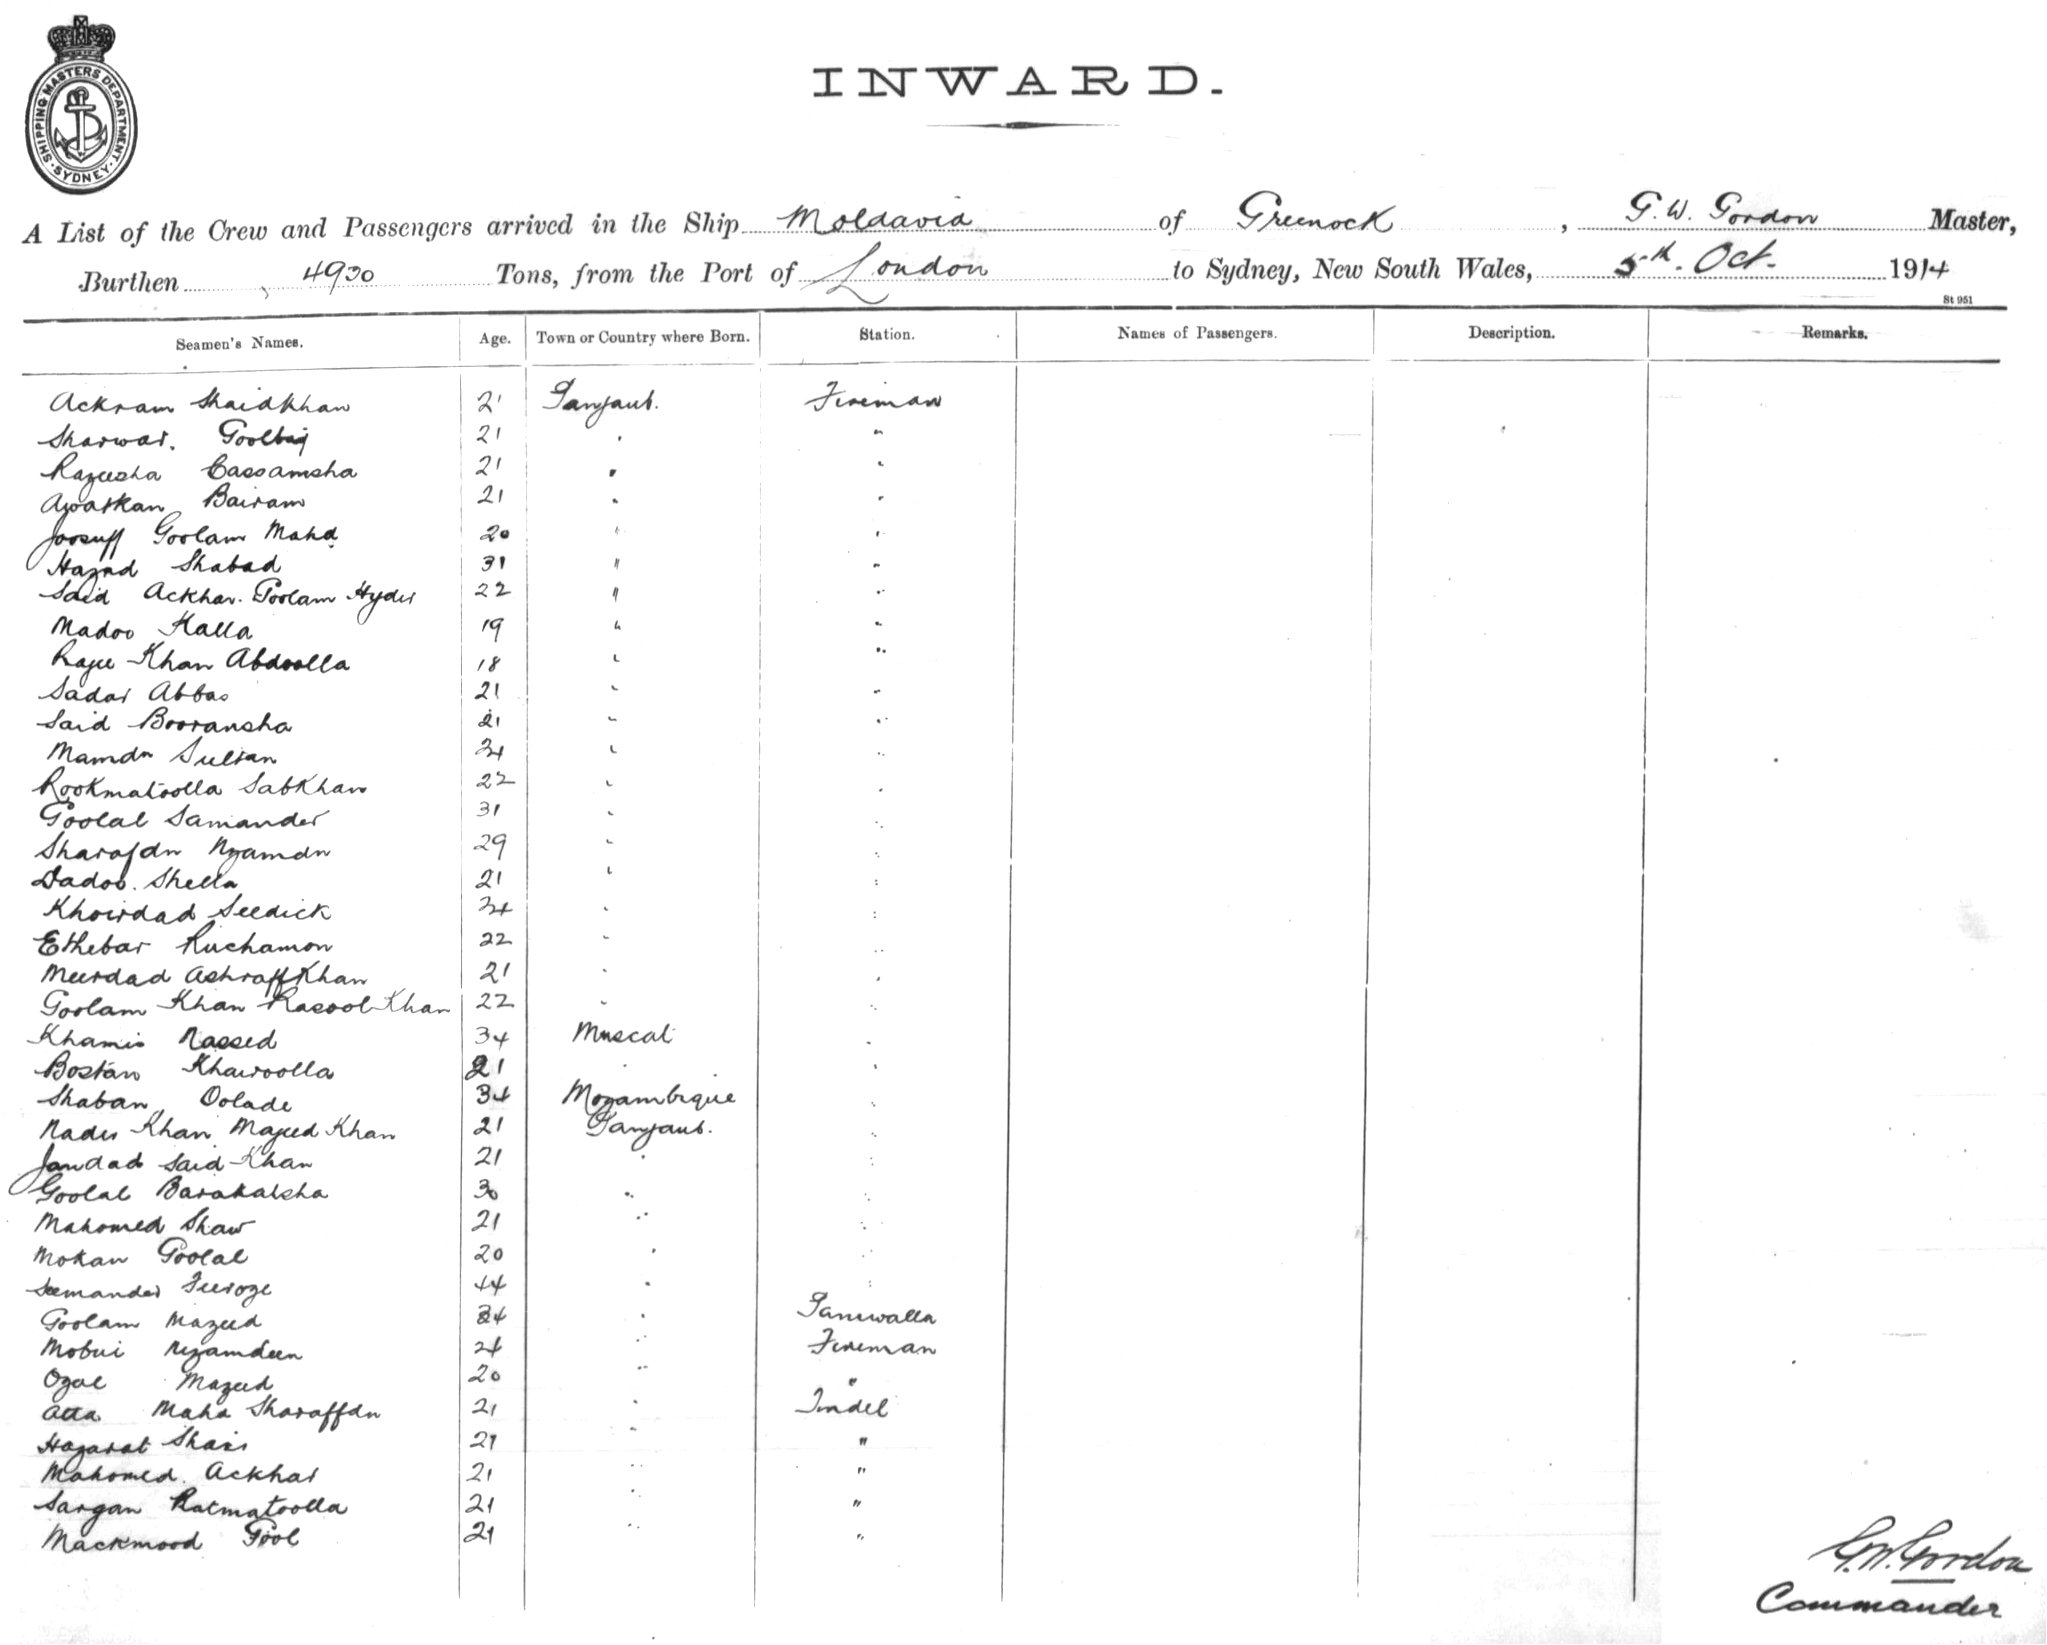 SHIPPING MASTERS DEPARTMENT
SYDNEY
INWARD.
A List of the Crew and Passengers arrived in the Ship Moldavia of Greenock, G. W. Gordon Master,
Burthen 4930 Tons, from the Port of London to Sydney, New South Wales, 5th. Oct. 1914
St 951
Seamen's Names. Age. Town or Country where Born. Station. Names of Passengers. Description. Remarks.
Ackram Shaidkhan 21 Panjaub. Fireman
Sharwar. Goolbaj 21 " "
Razeesha Cassamsha 21 " "
Awatkan Bairam 21 " "
Joosuff Goolam Mahd 20 " "
Hazad Shabad 31 " "
Said Ackhar. Goolam Hyder 22 " "
Madoo Kalla 19 " "
Rajee Khan Abdoolla 18 " "
Sadar Abbas 21 " "
Said Booransha 21 " "
Mamdn Sultan 34 " "
Rookmatoolla Sabkhan 22 " "
Goolal Samander 31 " "
Sharafdn Nzamdn 29 " "
Dadoo. Shella 21 " "
Khoirdad Seedick 34 " "
Ethebar Ruchamon 22 " "
Meerdad Ashraffkhan 21 " "
Goolam Khan Rasool Khan 22 " "
Khamis Nassed 34 Muscat "
Bostan Khairoolla 21 " "
Shaban Oolade 34 Mozambique "
Nader Khan Majeed Khan 21 Panjaub. "
Jandad Said Khan 21 " "
Goolal Barakatsha 30 " "
Mahomed Shaw 21 " "
Mokan Goolal 20 " "
Seemander Feeroze 44 " "
Goolam Mazeed 34 " Paniwalla
Mobui Nizamdeen 24 " Fireman
Ozal Mazeed 20 " "
Atta Mahd Sharaffdn 21 " Tindel
Hazarat Shair 21 " "
Mahomed. Ackhar 21 " "
Sargan Ratmatoolla 21 " "
Mackmood Gool 21 " "
G. W. Gordon
Commander